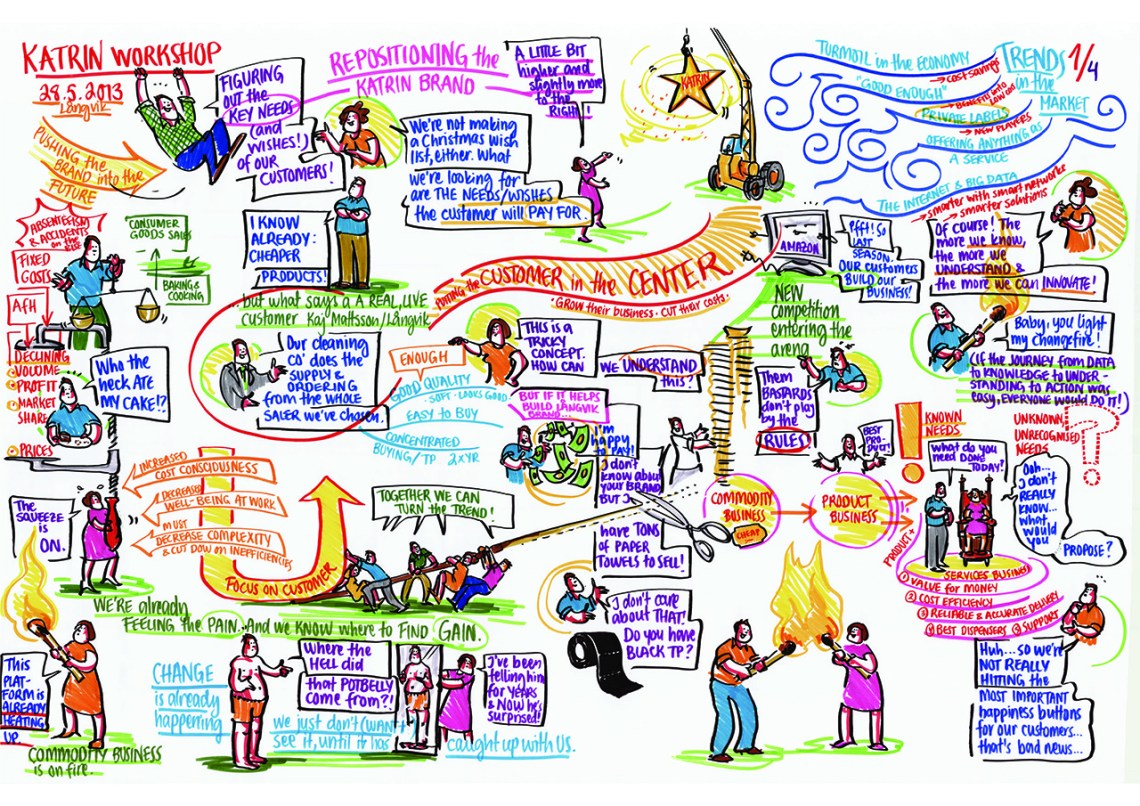 KATRIN WORKSHOP
28.5.2013
Långvik
PUSHING the
BRAND into the
FUTURE
FIGURING
OUT the
KEY NEEDS
(and
WISHES!)
of OUR
CUSTOMERS!
REPOSITIONING the
KATRIN BRAND
A LITTLE BIT
higher and
slightly more
to the
RIGHT!
We're not making
a Christmas wish
list, either. What
we're looking for
are THE NEEDS/WISHES
the customer will PAY FOR.
I KNOW
ALREADY:
CHEAPER
PRODUCTS!
KATRIN
TRENDS 1/4
in the
MARKET
TURMOIL in the ECONOMY
→ COST SAVINGS
"GOOD ENOUGH"
PRIVATE LABELS
→ NEW PLAYERS
OFFERING ANYTHING AS
A SERVICE
THE INTERNET & BIG DATA
→ smarter with smart networks
→ smarter solutions
Of course! The
more we know,
the more we
UNDERSTAND &
the more we can INNOVATE!
AMAZON
Pfft! So
LAST
SEASON.
OUR customers
BUILD our
BUSINESS!
NEW
competition
entering the
arena
Baby, you light
my changefire!
(If the JOURNEY from DATA
to KNOWLEDGE to UNDER-
STANDING to ACTION was
easy, EVERYONE WOULD DO IT!)
ABSENTEEISM
& ACCIDENTS
on the
RISE
FIXED
COSTS
AFH
CONSUMER
GOODS SALES
BAKING &
COOKING
DECLINING
• VOLUME
• PROFIT
• MARKET
SHARE
• PRICES
Who the
heck ATE
MY CAKE!?
PUTTING the CUSTOMER in the CENTER
"GROW their business · CUT their costs"
...but what says a A REAL, LIVE
customer Kaj Mattsson/Långvik
Our cleaning
CO' does the
SUPPLY &
ORDERING
from the WHOLE
SALER we've chosen.
ENOUGH
GOOD QUALITY
· SOFT · LOOKS GOOD ·
EASY to BUY
CONCENTRATED
BUYING/TP 2xYR
THIS is a
TRICKY
CONCEPT.
HOW CAN
WE UNDERSTAND
this?
BUT IF IT HELPS
BUILD LÅNGVIK
BRAND...
I'm
happy
to PAY!
I don't
know about
your BRAND
BUT I
have TONS
of PAPER
TOWELS to SELL!
I don't care
about THAT!
Do you have
BLACK TP?
Them
BASTARDS
don't play
by the
RULES!
BEST
PRO-
DUCT!
COMMODITY
BUSINESS
CHEAP
PRODUCT
BUSINESS
PRODUCT+
KNOWN
NEEDS
UNKNOWN,
UNRECOGNISED
NEEDS
What do you
need DONE
TODAY?
Ooh...
I don't
REALLY
know...
what
would
you
PROPOSE?
SERVICES BUSINESS
① VALUE for MONEY
② COST EFFICIENCY
③ RELIABLE & ACCURATE DELIVERY
④ BEST DISPENSERS ⑤ SUPPORT
Huh... so we're
NOT REALLY
HITTING the
MOST IMPORTANT
happiness buttons
for our customers...
that's bad news...
The
SQUEEZE
is
ON.
INCREASED
COST CONSCIOUSNESS
DECREASED
WELL-BEING AT WORK
MUST
DECREASE COMPLEXITY
& CUT DOW on INEFFICIENCIES
FOCUS on CUSTOMER
TOGETHER WE CAN
TURN the TREND!
WE'RE already
FEELING the PAIN. And we KNOW where to FIND GAIN.
This
PLAT-
FORM is
ALREADY
HEATING
UP.
COMMODITY BUSINESS
is on fire.
CHANGE
is already
happening
Where the
HELL did
that POTBELLY
come from?!
I've been
telling him
for YEARS
& NOW he's
SURPRISED!
we just don't (want to)
see it, until it has
caught up with us.